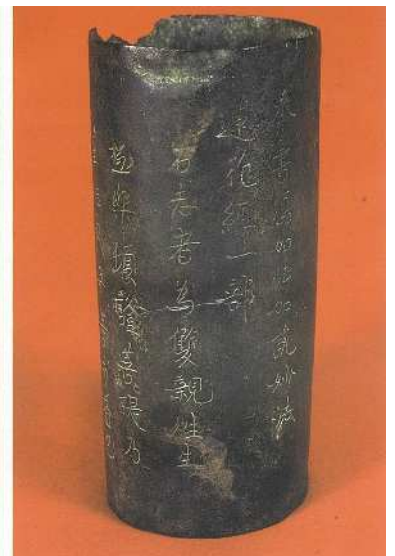 奉書写如法如説妙法
蓮花經一部
右志者為雙親往生
極樂頓證菩提乃